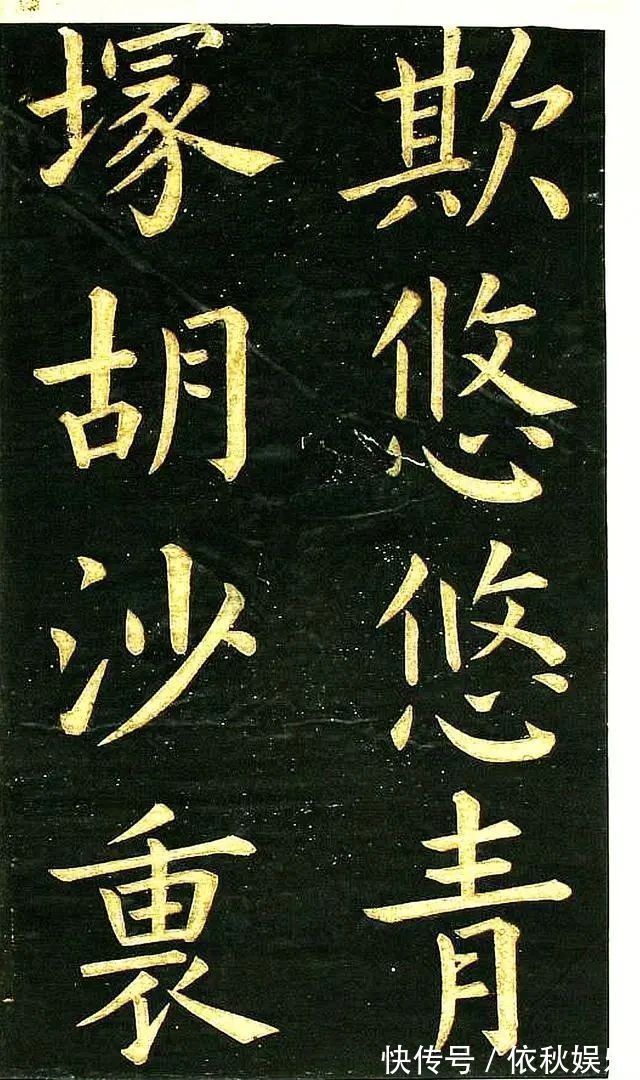 欺悠悠青
塚胡沙裏
快传号/依秋娱